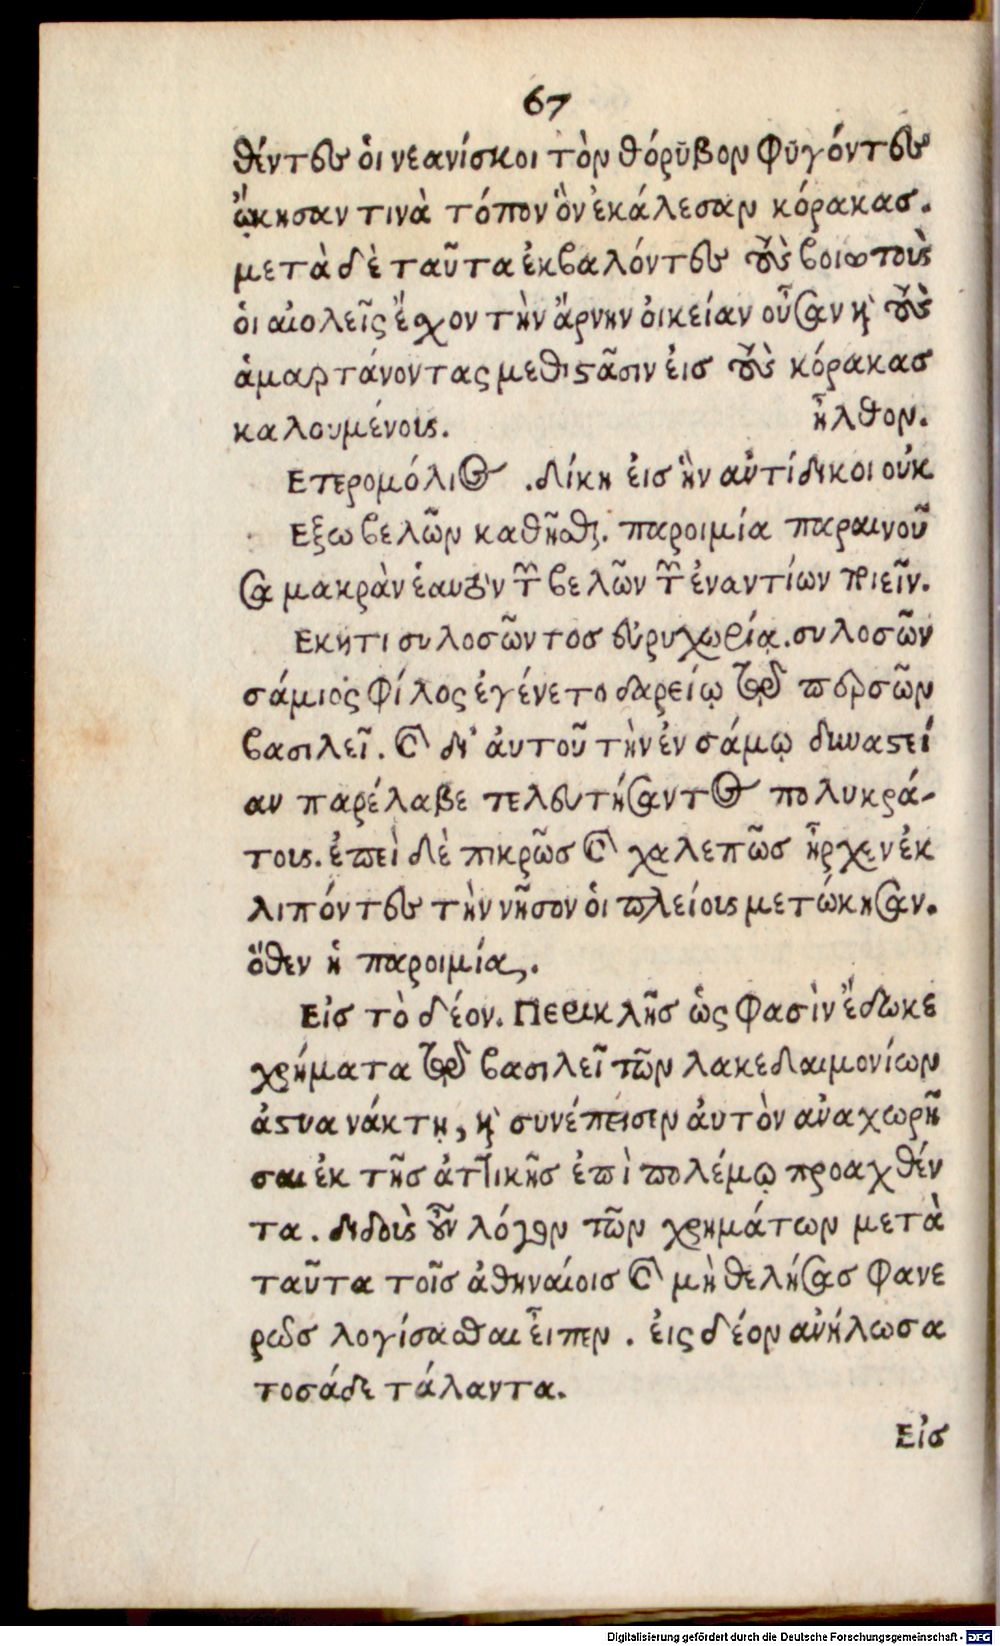 67
θέντες ὁι νεανίσκοι τὸν θόρυβον φυγόντες
ᾤκησαν τινὰ τόπον ὃν ἐκάλεσαν κόρακας.
μετὰ δὲ ταῦτα ἐκβαλόντες τοὺς βοιωτοὺς
ὁι αἰολεῖς ἔχον τὴν ἄρνην ὀικείαν οὖσαν καὶ τοὺς
ἁμαρτάνοντας μεθιστᾶσιν ἐις τοὺς κόρακας
καλουμένους. ἦλθον.
Ετερομόλιος .δίκη ἐισ ἣν αὐτίδικοι οὐκ
Εξω βελῶν καθῆσθαι. παροιμία παραινοῦ
σα μακρὰν ἑαυτὸν τῶν βελῶν τῶν ἐναντίων ποιεῖν.
Εκητι συλοσῶντος εὐρυχωρία. συλοσῶν
σάμιος φίλος ἐγένετο δαρείῳ τῷ περσῶν
βασιλεῖ. καὶ δι' ἀυτοῦ τὴν ἐν σάμῳ δυναστεί
αν παρέλαβε τελευτήσαντος πολυκρά-
τους. ἐπεὶ δὲ πικρῶς καὶ χαλεπῶς ἦρχεν ἐκ
λιπόντες τὴν νῆσον ὁι πλείους μετώκησαν.
ὅθεν ἡ παροιμία.
Εἰς τὸ δέον. Περικλῆς ὡς φασὶν ἔδωκε
χρήματα τῷ βασιλεῖ τῶν λακεδαιμονίων
ἀστυανάκτῃ, καὶ συνέπεισεν ἀυτὸν ἀναχωρῆ
σαι ἐκ τῆς ἀττικῆς ἐπὶ πολέμῳ προαχθέν
τα. διδοὺς οὖν λόγον τῶν χρημάτων μετὰ
ταῦτα τοῖς ἀθηναίοις καὶ μὴ θελήσας φανε
ρῶς λογίσασθαι ἒιπεν . ἐις δέον ἀνήλωσα
τοσάδε τάλαντα.
Εἰς
Digitalisierung gefördert durch die Deutsche Forschungsgemeinschaft - DFG